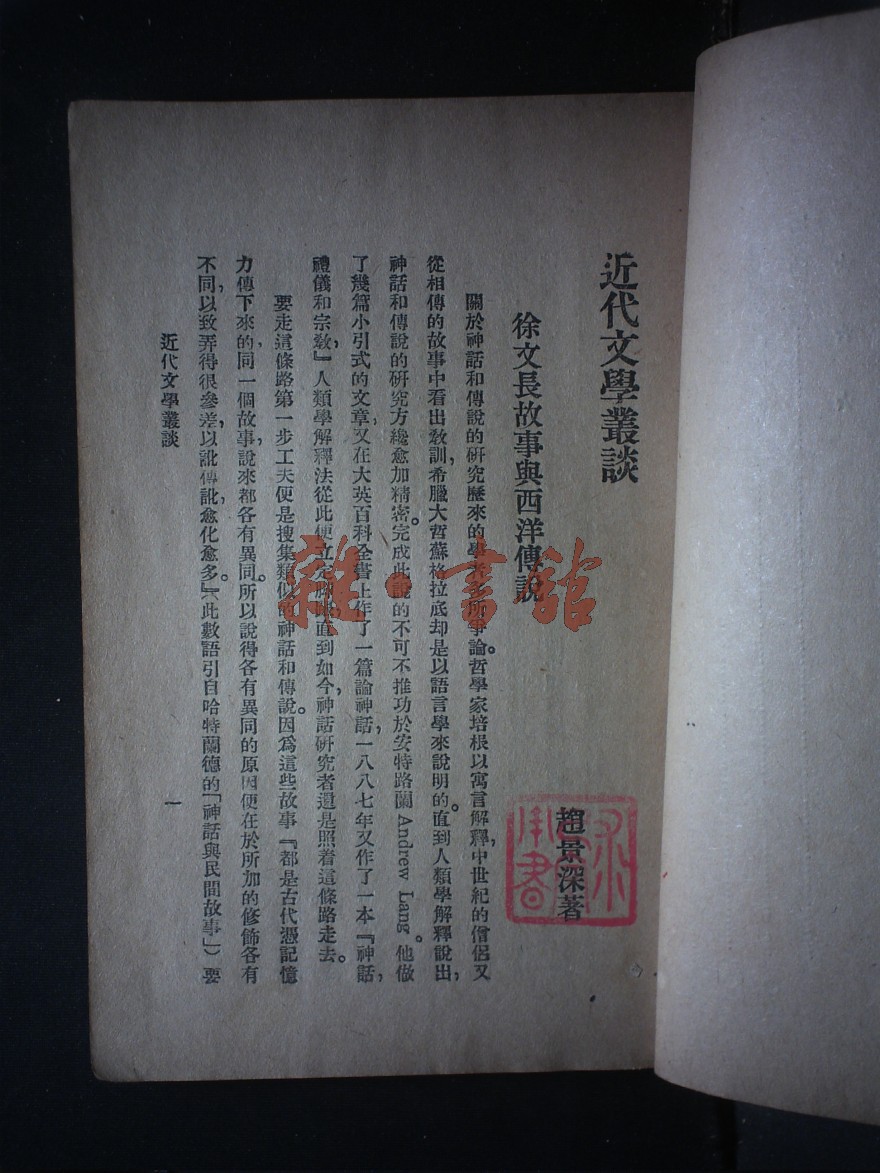 近代文學叢談
徐文長故事與西洋傳說
趙景深著
關於神話和傳說的研究歷來的學者多所爭論。哲學家培根以寓言解釋,中世紀的僧侶又
從相傳的故事中看出教訓,希臘大哲蘇格拉底却是以語言學來說明的。直到人類學解釋說出,
神話和傳說的研究方纔愈加精密。完成此說的不可不推功於安特路蘭 Andrew Lang。他做
了幾篇小引式的文章,又在大英百科全書上作了一篇論神話,一八八七年又作了一本『神話,
禮儀和宗教,』人類學解釋法從此便立定脚跟,直到如今,神話研究者還是照着這條路走去。
要走這條路第一步工夫便是搜集類似的神話和傳說。因爲這些故事『都是古代憑記憶
力傳下來的,同一個故事,說來都各有異同。所以說得各有異同的原因便在於所加的修飾各有
不同,以致弄得很參差,以訛傳訛,愈化愈多。』(此數語引自哈特蘭德的「神話與民間故事」)要
近代文學叢談
一
雜·書館